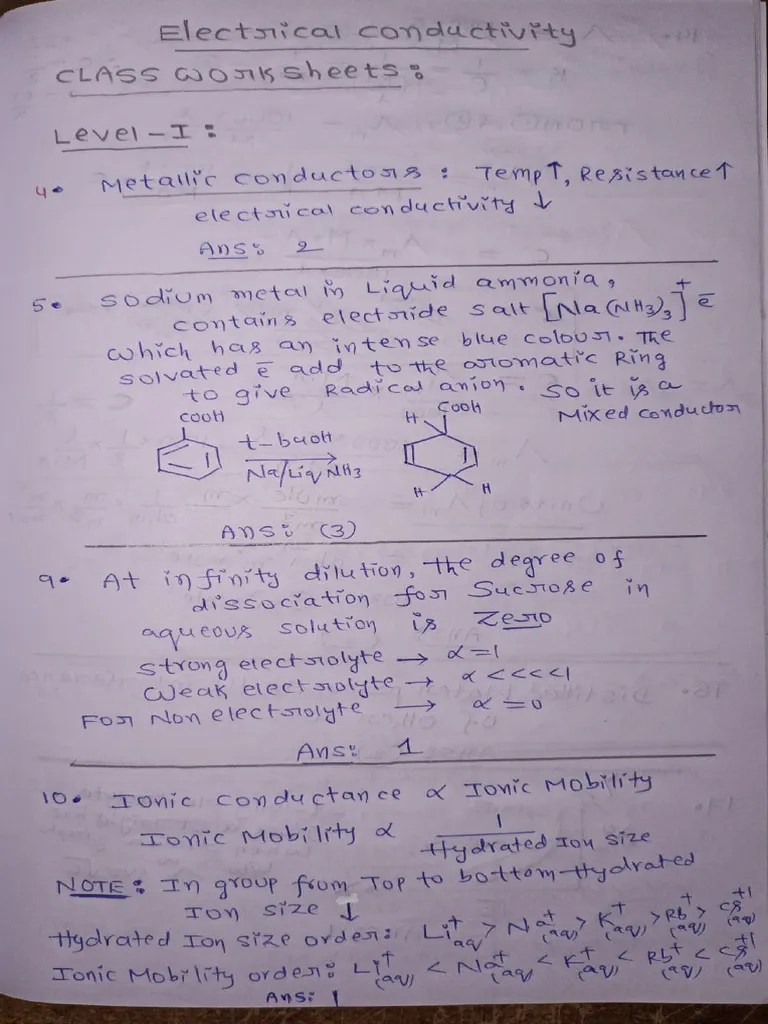 Electrical conductivity
CLASS WORKSheets:
Level-I:
4. Metallic conductors: Temp↑, Resistance↑
electrical conductivity ↓
Ans: 2
5. Sodium metal in Liquid ammonia,
contains electride salt [Na(NH3)3]+ e̅
which has an intense blue colour. The
solvated e̅ add to the aromatic Ring
to give Radical anion. So it is a
Mixed conductor
COOH
t-buOH
Na/Liq NH3
H COOH
H H
Ans: (3)
9. At infinity dilution, the degree of
dissociation for Sucrose in
aqueous solution is Zero
Strong electrolyte → α=1
Weak electrolyte → α<<<<1
For Non electrolyte → α=0
Ans: 1
10. Ionic conductance α Ionic Mobility
Ionic Mobility α 1/Hydrated Ion size
NOTE: In group from Top to bottom-Hydrated
Ion size ↓
Hydrated Ion size order: Li+aq > Na+(aq) > K+(aq) > Rb+(aq) > Cs+1(aq)
Ionic Mobility order: Li+(aq) < Na+(aq) < K+(aq) < Rb+(aq) < Cs+1(aq)
Ans: 1